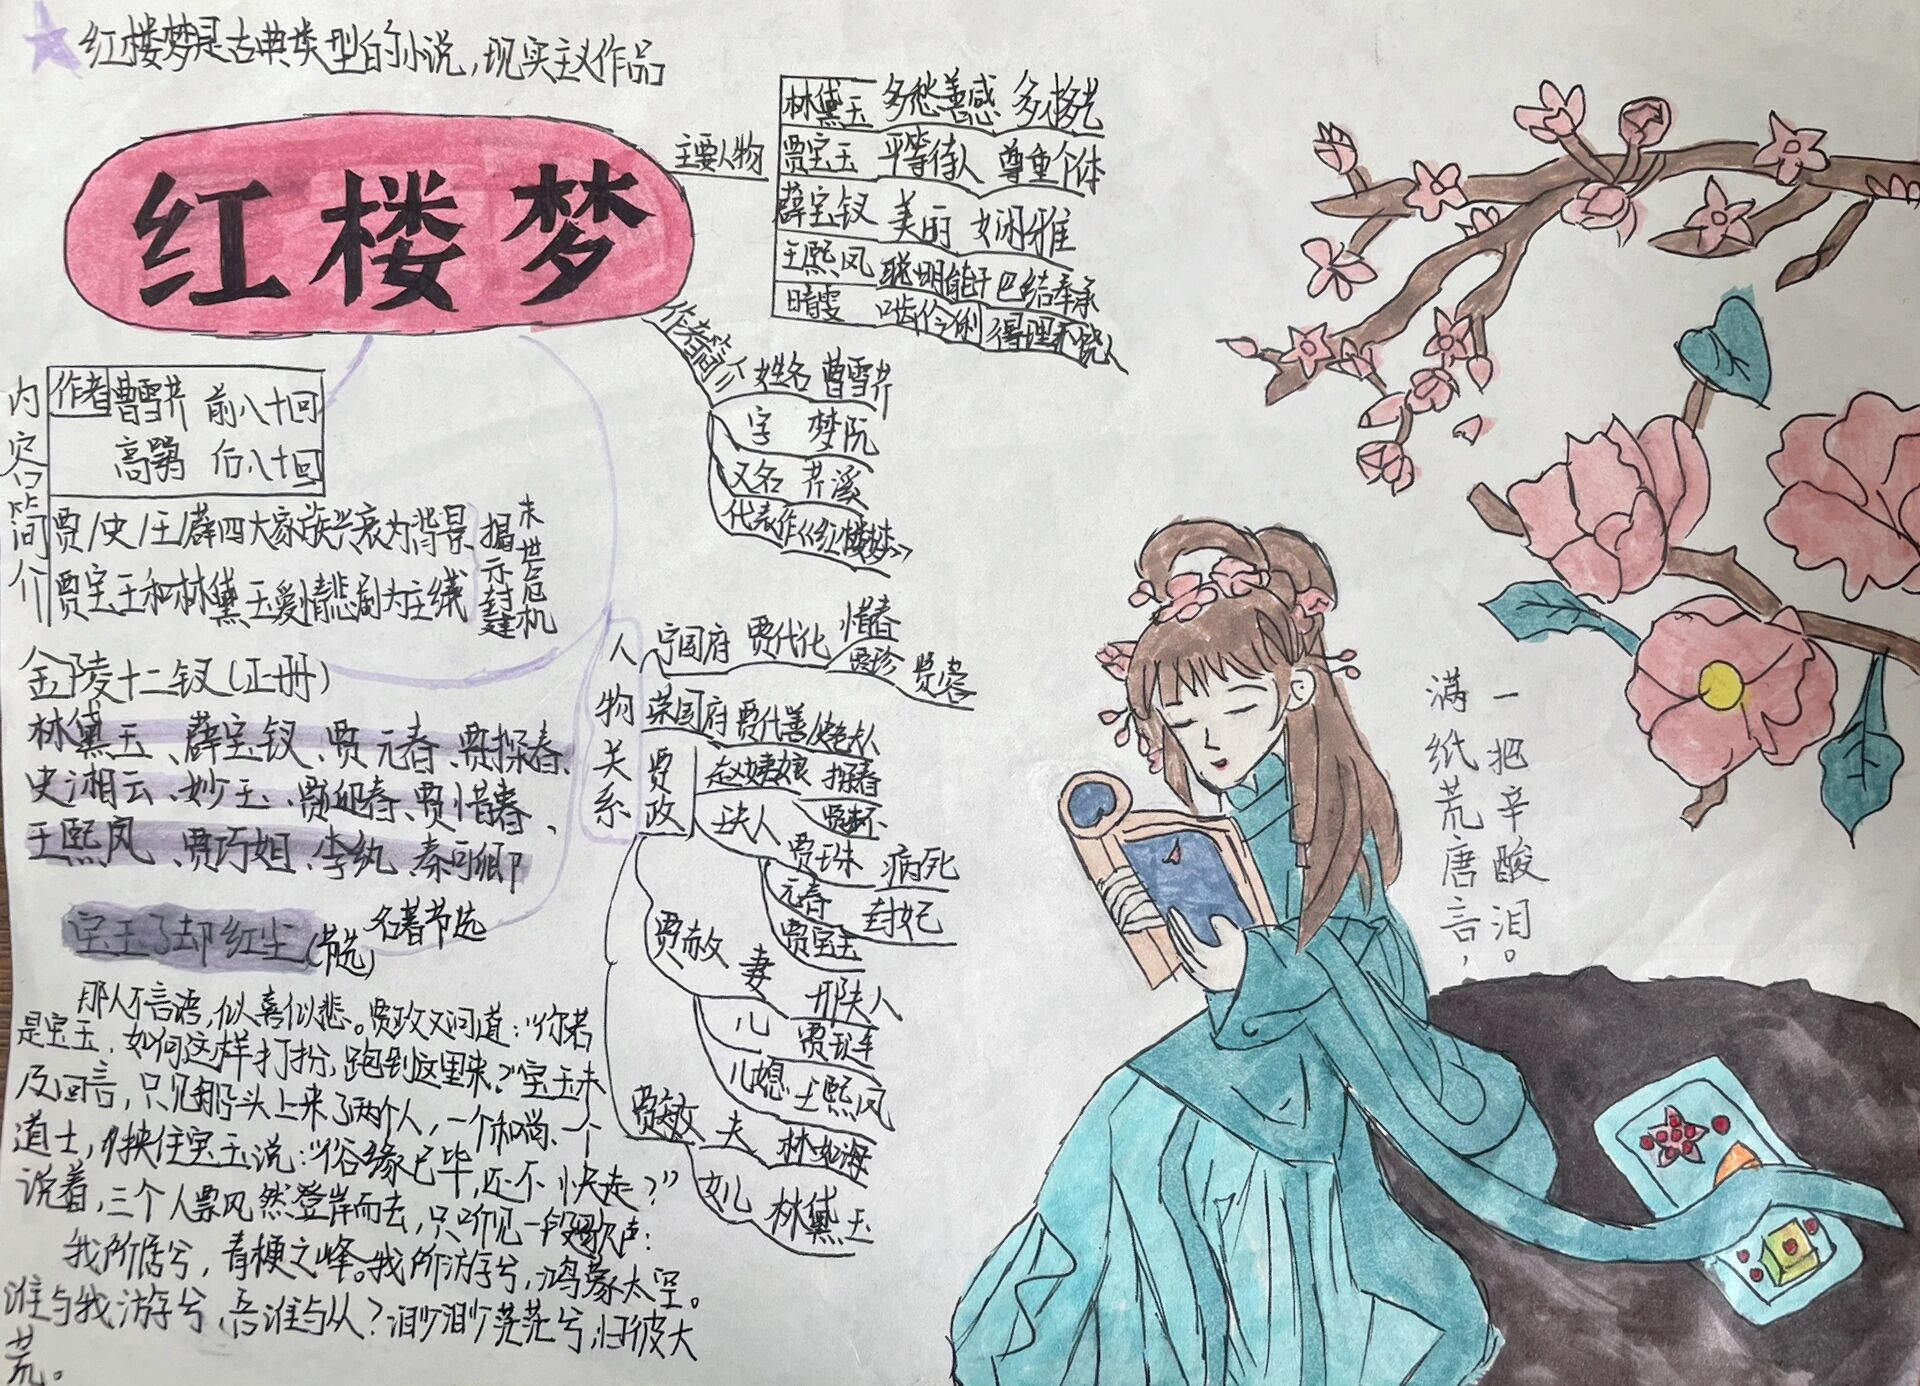 红楼梦是古典类型的小说,现实主义作品
红楼梦
主要人物
林黛玉 多愁善感 多才多艺
贾宝玉 平等待人 尊重个体
薛宝钗 美丽 娴雅
王熙凤 聪明能干 巴结奉承
晴雯 口齿伶俐 得理不饶人
作者简介
姓名 曹雪芹
字 梦阮
又名 芹溪
代表作《红楼梦》
内容简介
作者 曹雪芹 前八十回
高鹗 后八十回
贾/史/王/薛四大家族兴衰为背景
贾宝玉和林黛玉爱情悲剧为主线
揭示封建
末世危机
金陵十二钗(正册)
林黛玉、薛宝钗、贾元春、贾探春、
史湘云、妙玉、贾迎春、贾惜春、
王熙凤、贾巧姐、李纨、秦可卿
人物关系
宁国府 贾代化 惜春
贾珍 贾蓉
荣国府 贾代善
贾政
赵姨娘 探春
王夫人 贾环
贾珠 病死
元春 封妃
贾宝玉
贾赦 妻 邢夫人
儿 贾琏
儿媳 王熙凤
贾敏 夫 林如海
女儿 林黛玉
宝玉了却红尘(节选) 名著节选
那人不言语,似喜似悲。贾政又问道:“你若
是宝玉,如何这样打扮,跑到这里来?”宝玉未
及回言,只见船头上来了两个人,一个和尚、一个
道士,夹住宝玉说:“俗缘已毕,还不快走?”
说着,三个人飘然登岸而去,只听见一段歌声:
我所居兮,青梗之峰。我所游兮,鸿蒙太空。
谁与我游兮,吾谁与从?渺渺茫茫兮,归彼大
荒。
满纸荒唐言,
一把辛酸泪。